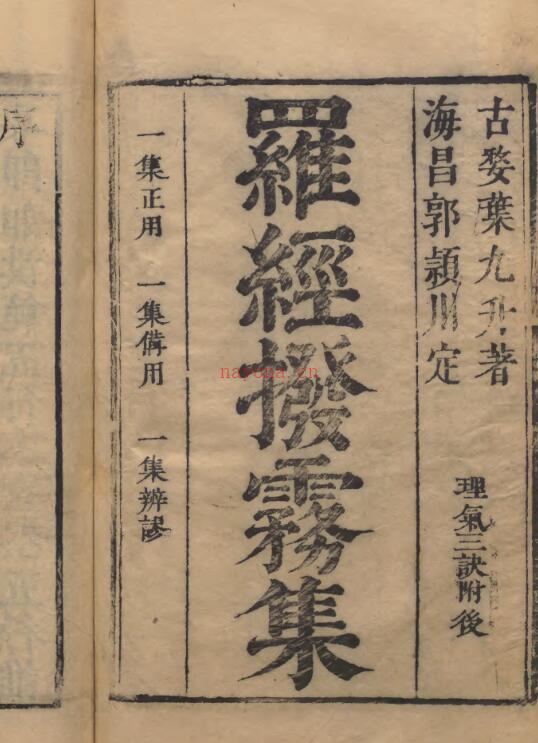 古婺葉九升著
海昌郭頴川定
理氣三訣附後
羅經撥霧集
一集正用 一集備用 一集辨謬
序